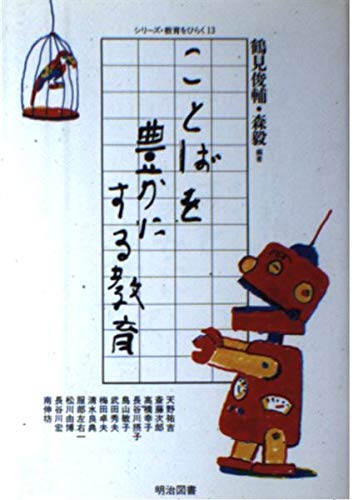 シリーズ・教育をひらく13
鶴見俊輔・森毅 編著
ことばを
豊かに
する教育
天野祐吉
斎藤次郎
高橋幸子
長谷川摂子
鳥山敏子
武田秀夫
梅田卓夫
清水良典
服部左右一
松川由博
長谷川宏
南伸坊
明治図書